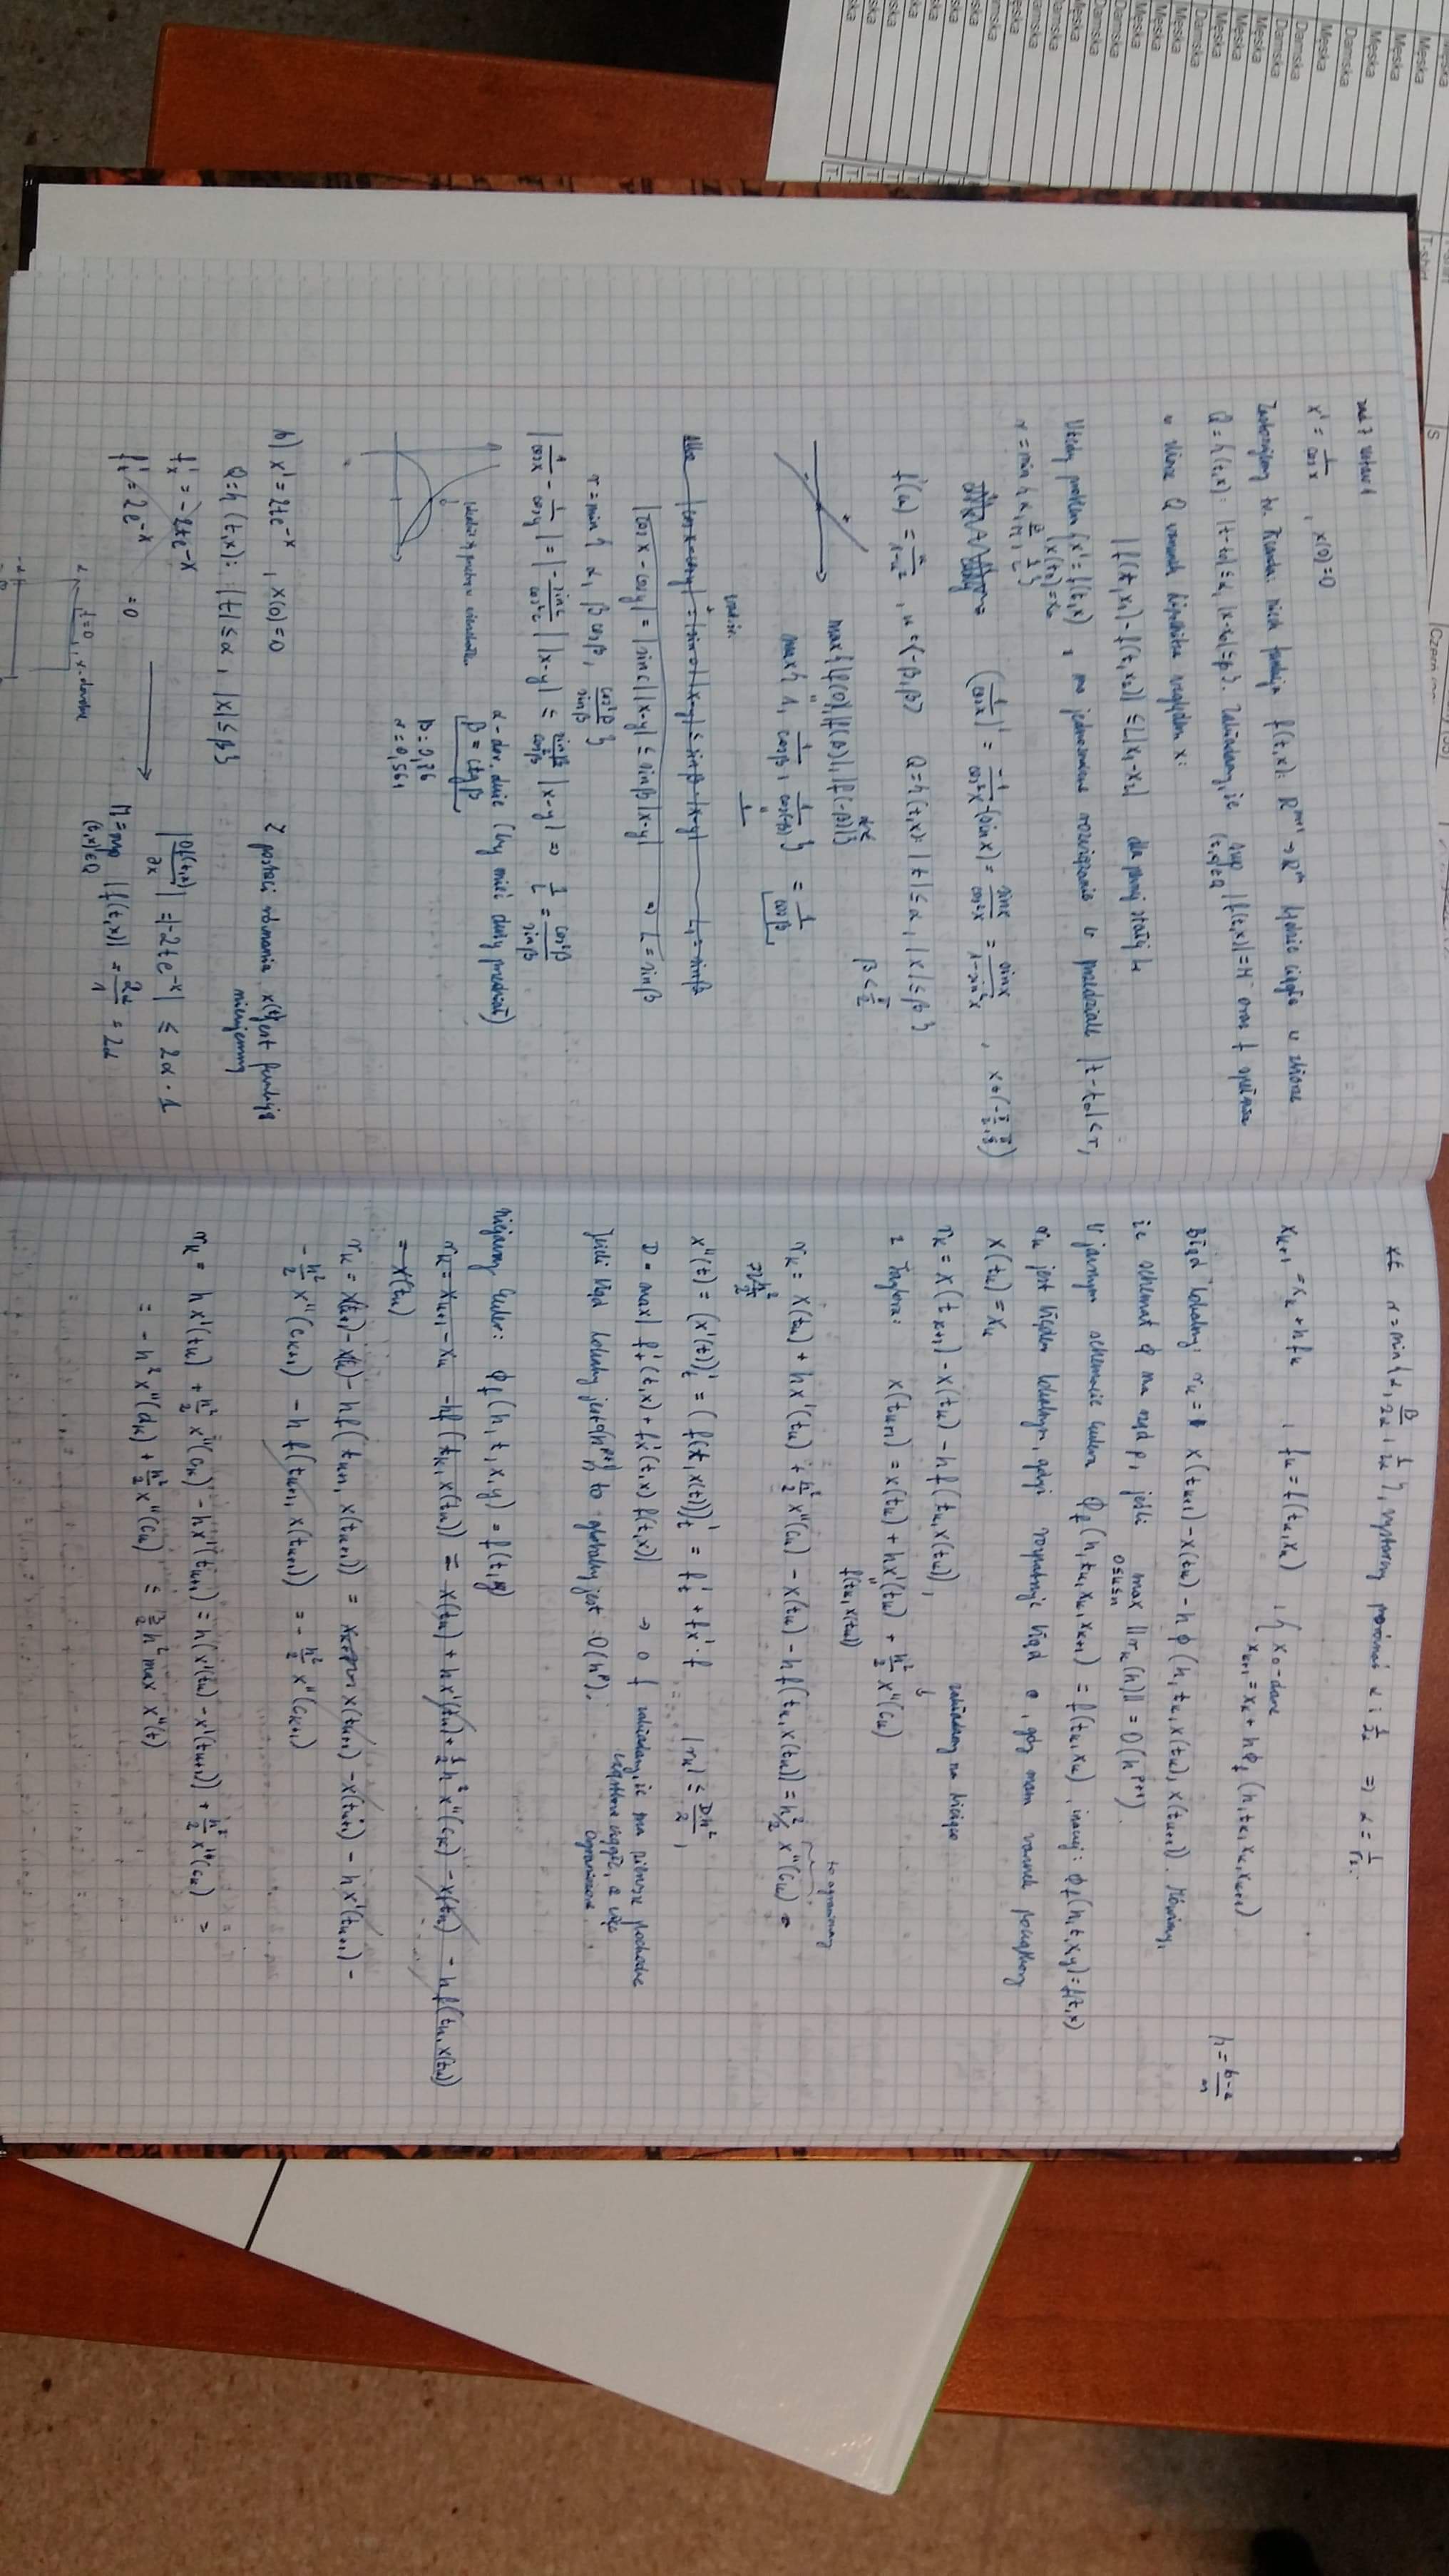 Męska
T-shirt
S
Męska
T-shirt
Męska
Męska
Damska
Męska
Damska
Damska
Męska
Męska
Męska
Damska
Męska
Męska
Męska
Damska
zad 7 zestaw 1
x' = 1/cos x , x(0)=0
Zastosujemy tw. Picarda: niech funkcja f(t,x): R^{m+1} → R^m będzie ciągła w zbiorze
Q = {(t,x): |t-t0| ≤ α, |x-x0| ≤ β}. Zakładamy, że sup_{(t,x)∈Q} |f(t,x)| = M oraz f spełnia
w zbiorze Q warunek Lipschitza względem x:
|f(t,x1) - f(t,x2)| ≤ L|x1-x2| dla pewnej stałej L
Wtedy problem {x' = f(t,x) , ma jednoznaczne rozwiązanie w przedziale |t-t0| < r,
x(t0) = x0
r = min{α, β/M, 1/L}
(1/cos x)' = -1/cos²x · (-sin x) = sin x/cos²x = sin x/(1-sin²x) , x∈(-π/2, π/2)
f'(u) = u/(1-u²) , u=(-β,β) Q={(t,x): |t| ≤ α, |x| ≤ β}
β < π/2
max{|f(0)|, |f(β)|, |f(-β)|}
max{1, 1/cosβ, 1/cos(-β)} = 1/cosβ
|cos x - cos y| = |sin c| |x-y| ≤ sinβ |x-y| L1 = sinβ
|cos x - cos y| = |sin c| |x-y| ≤ sinβ |x-y| ⇒ L = sinβ
r = min{α, β cosβ, cos²β/sinβ}
|1/cos x - 1/cos y| = |-sin c/cos²c| |x-y| ≤ sinβ/cos²β |x-y| ⇒ 1/L = cos²β/sinβ
α - dow. duże (by mieć duży przedział)
β = ctg β
β = 0,86
r = 0,561
b) x' = 2te^{-x} , x(0)=0
Q={(t,x): |t| ≤ α, |x| ≤ β}
f'x = -2te^{-x}
f't = 2e^{-x} = 0
Z postaci równania x(t) jest funkcją
nieujemną
|∂f(t,x)/∂x| = |-2te^{-x}| ≤ 2α · 1
M = sup_{(t,x)∈Q} |f(t,x)| = 2α/1 = 2α
t=0, x-dowolne
r = min{α, β/2α, 1/2α}, wystarczy porównać α i 1/2α ⇒ α = 1/√2.
x_{k+1} = x_k + h f_k , f_k = f(t_k, x_k) , { x0 - dane
x_{k+1} = x_k + h Φ_f(h, t_k, x_k, x_{k+1})
h = (b-a)/n
Błąd lokalny: r_k = x(t_{k+1}) - x(t_k) - h ϕ(h, t_k, x(t_k), x(t_{k+1})). Mówimy,
że schemat ϕ ma rząd p, jeśli max_{0≤k≤n} ||r_k(h)|| = O(h^{p+1}).
W jawnym schemacie Eulera Φ_f(h, t_k, x_k, x_{k+1}) = f(t_k, x_k) , inaczej: ϕ_f(h,t,x,y) = f(t,x)
r_k jest błędem lokalnym, gdyż rozpatruję błąd, gdy mam warunek początkowy
x(t_k) = x_k
r_k = x(t_{k+1}) - x(t_k) - h f(t_k, x(t_k)),
zakładamy na bieżąco
↓
z Taylora: x(t_{k+1}) = x(t_k) + h x'(t_k) + h²/2 x''(c_k)
f(t_k, x(t_k))
to ograniczamy
r_k = x(t_k) + h x'(t_k) + h²/2 x''(c_k) - x(t_k) - h f(t_k, x(t_k)) = h²/2 x''(c_k) =
x''(t) = (x'(t))'_t = (f(t, x(t)))'_t = f'_t + f'_x · f |r_k| ≤ Dh²/2 ,
D = max |f'_t(t,x) + f'_x(t,x) f(t,x)| → o f zakładamy, że ma pierwsze pochodne
cząstkowe ciągłe, a więc
ograniczone.
Jeżeli błąd lokalny jest O(h^{p+1}), to globalny jest O(h^p).
niejawny Euler: ϕ_f(h,t,x,y) = f(t,y)
r_k = x_{k+1} - x_k - hf(t_k, x(t_k)) = x(t_k) + hx'(t_k) + 1/2 h² x''(c_k) - x(t_k) - h f(t_k, x(t_k))
= x(t_k)
r_k = x(t_{k+1}) - x(t_k) - h f(t_{k+1}, x(t_{k+1})) = x(t_{k+1}) - x(t_{k+1}) - h x'(t_{k+1}) -
- h²/2 x''(c_{k+1}) - h f(t_{k+1}, x(t_{k+1})) = - h²/2 x''(c_{k+1})
r_k = h x'(t_k) + h²/2 x''(c_k) - h x'(t_{k+1}) = h(x'(t_k) - x'(t_{k+1})) + h²/2 x''(c_k) =
= - h² x''(d_k) + h²/2 x''(c_k) ≤ 3/2 h² max x''(t)